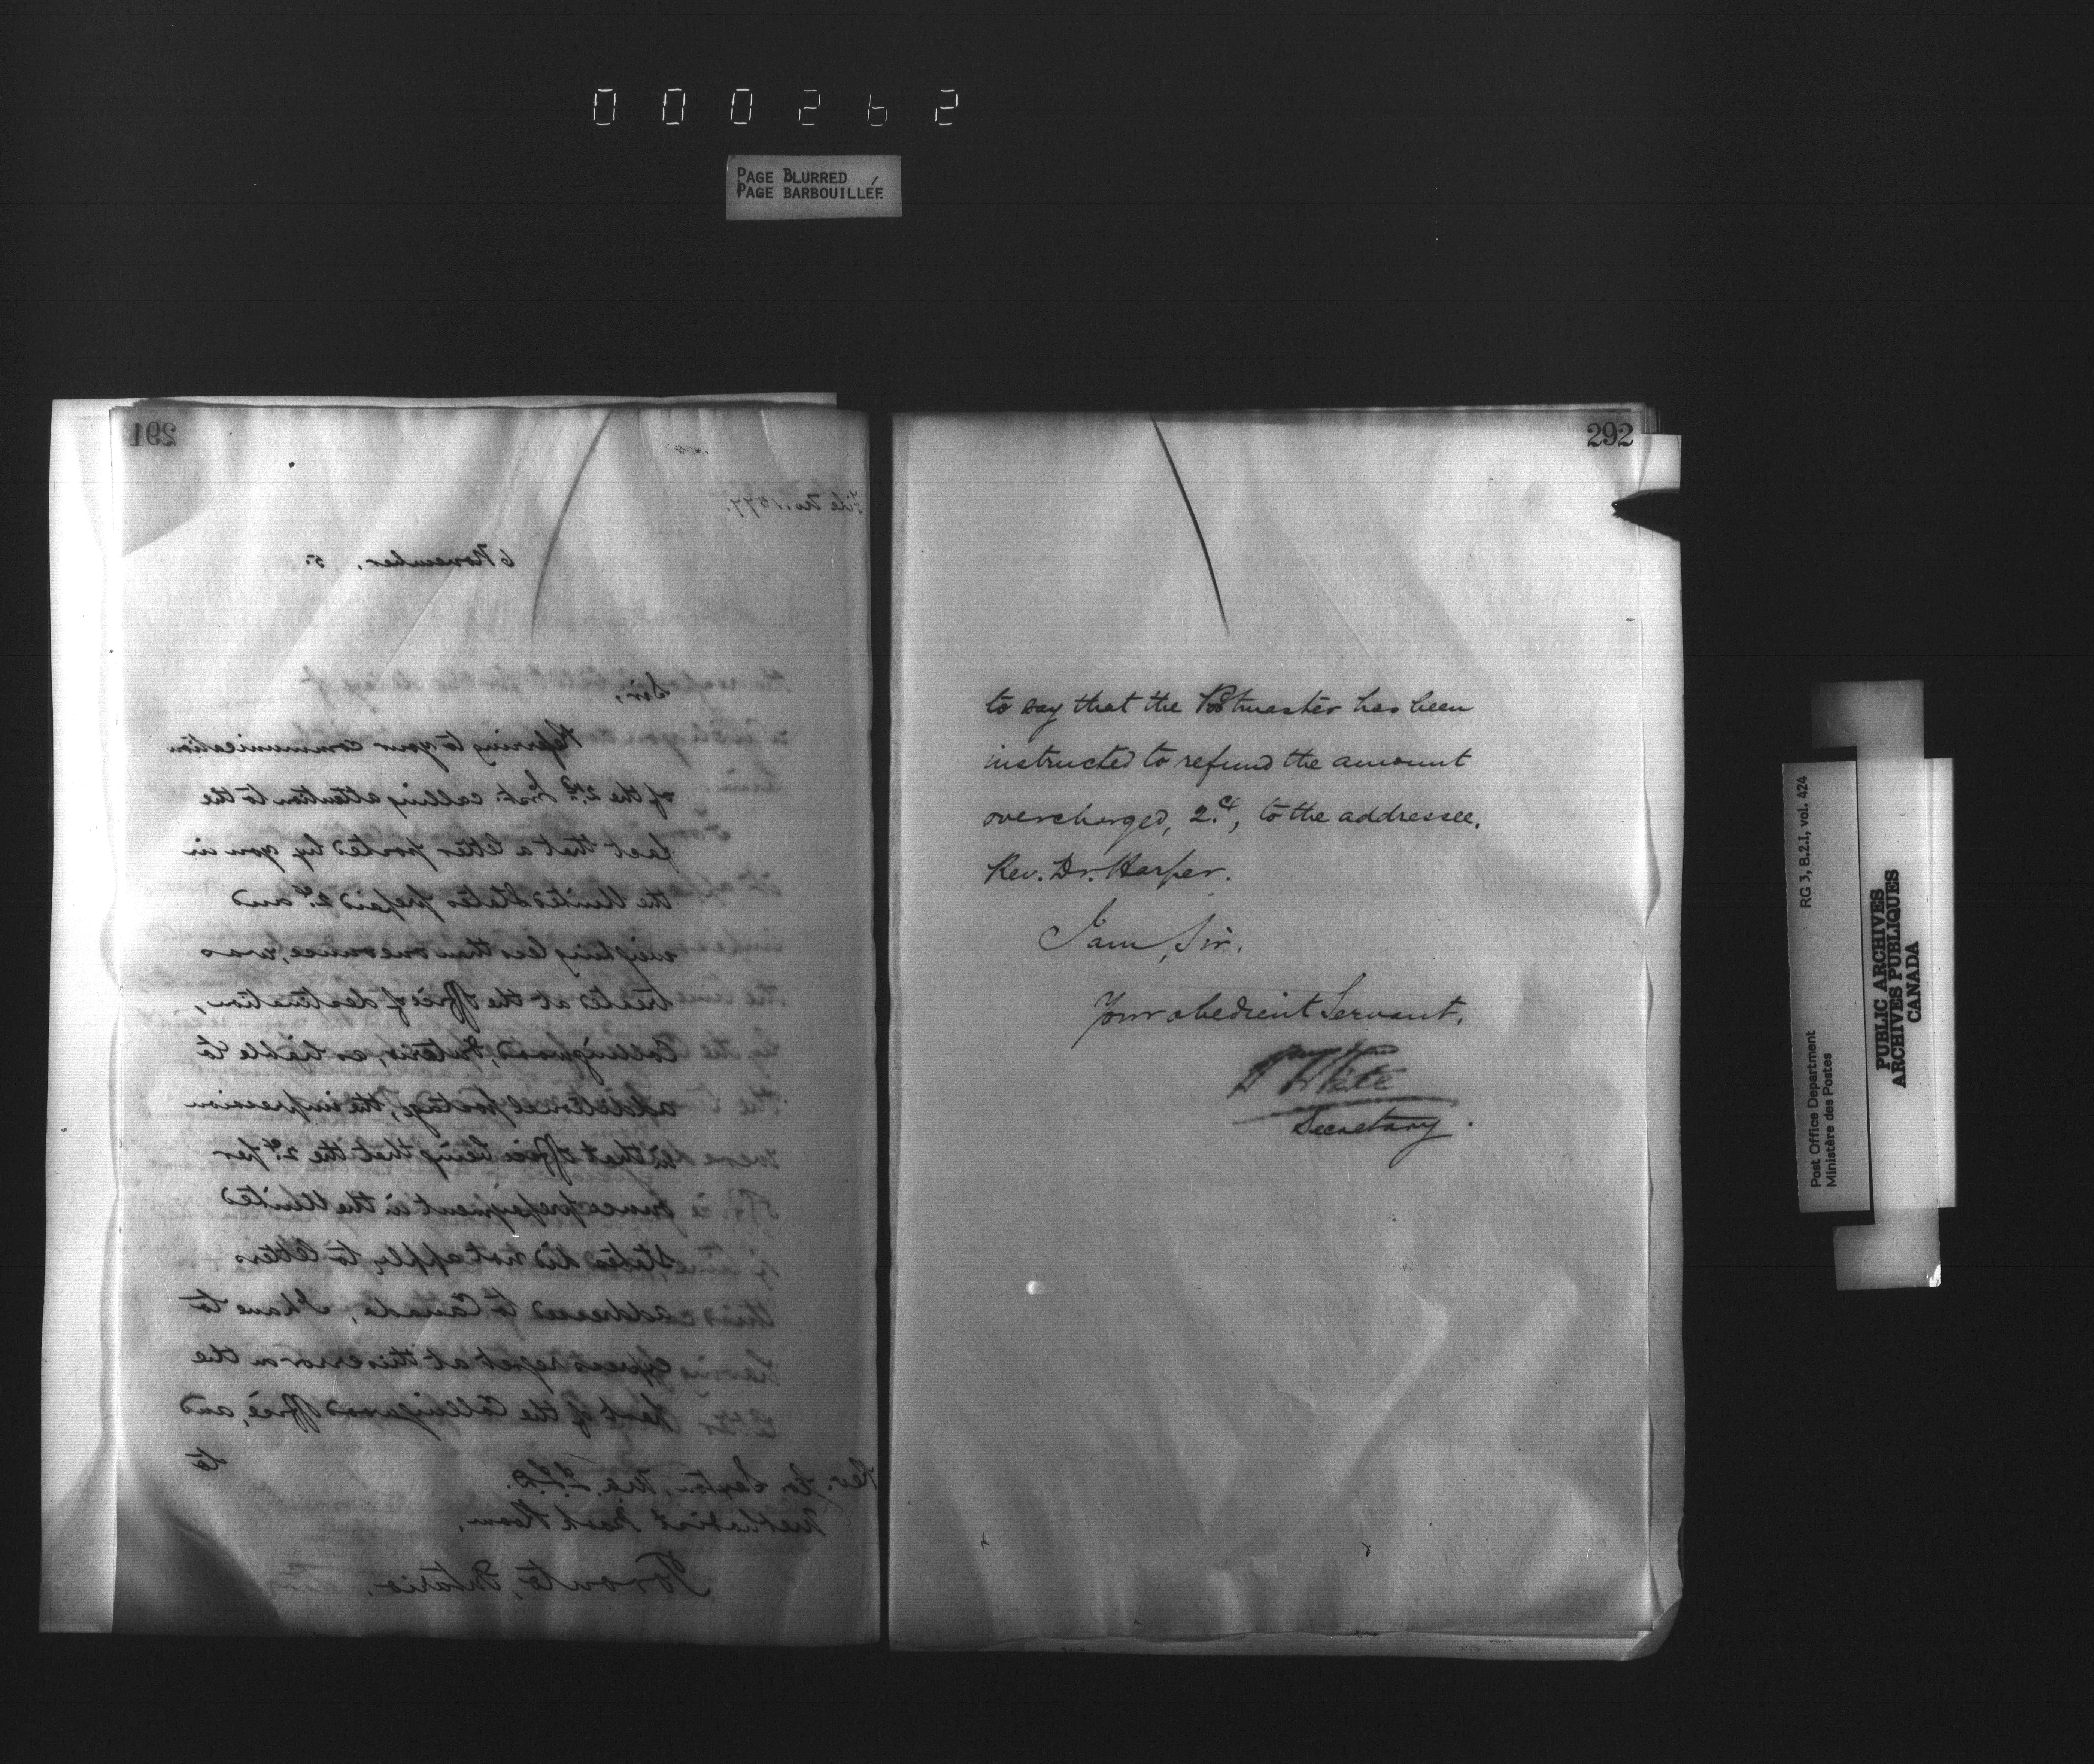 000262
PAGE BLURRED
PAGE BARBOUILLÉE
291
File No. 1577.
6 November, 5.
Sir,
Referring to your communication
of the 2nd. Inst. calling attention to the
fact that a letter posted by you in
the United States prepaid 2c. and
weighing less than one ounce, was
treated at the Office of destination,
Collingwood, Ontario, as liable to
additional postage, the impression
at that Office being that the 2c. per
ounce prepayment in the United
States did not apply to letters
addressed to Canada, I have to
express regret at this error on the
part of the Collingwood Office, and
to
Rev. Geo. Sexton, M.A. LL.D.
Methodist Book Room,
Toronto, Ontario.
292
to say that the Postmaster has been
instructed to refund the amount
overcharged, 2c., to the addressee,
Rev. Dr. Harper.
I am, Sir,
Your obedient Servant,
White
Secretary.
Post Office Department
Ministère des Postes
RG 3, B.2.I, vol. 424
PUBLIC ARCHIVES
ARCHIVES PUBLIQUES
CANADA